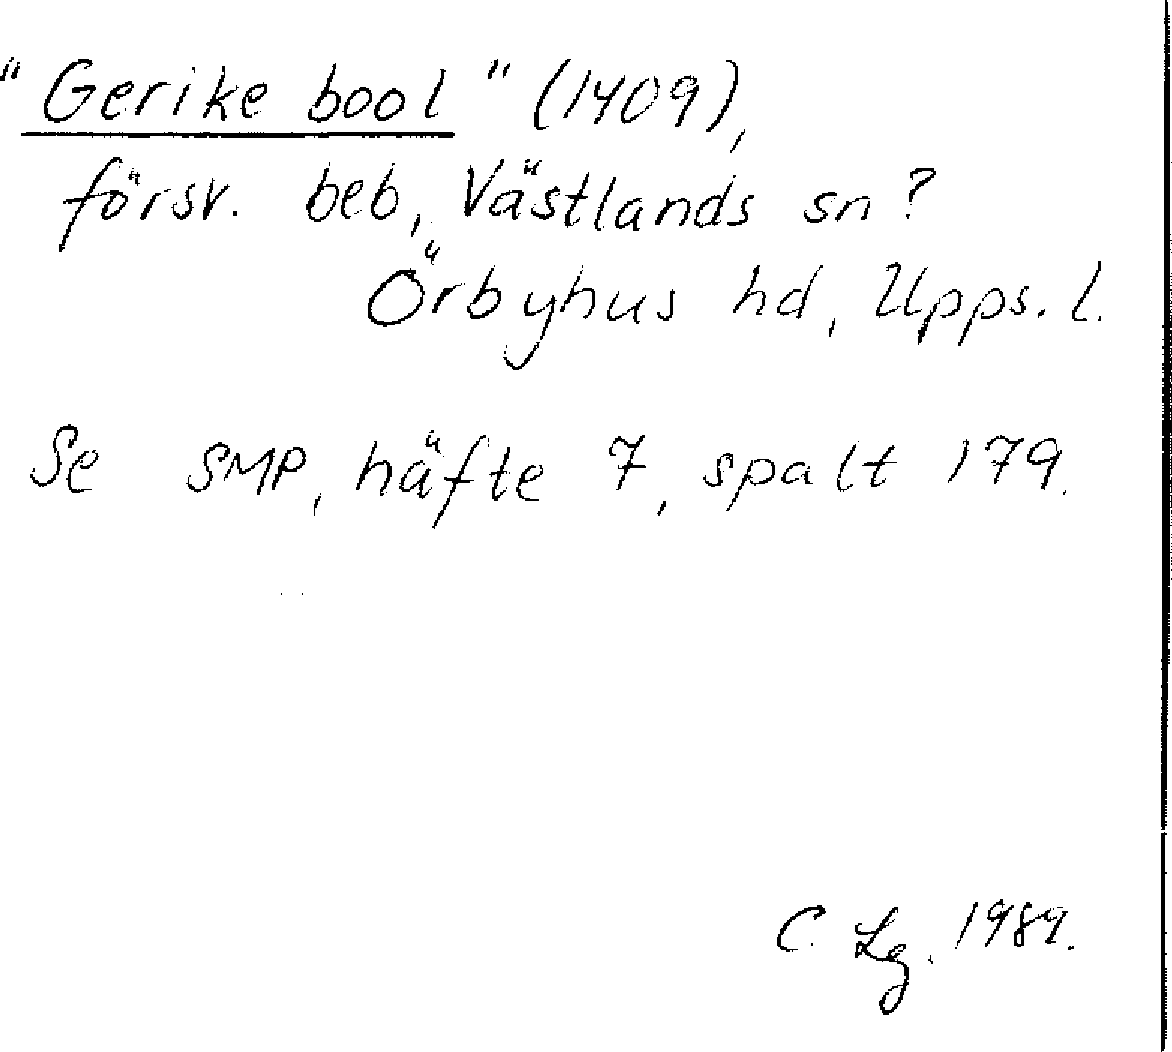 "Gerike bool" (1409),
försv. beb, Västlands sn?
Örbyhus hd, Upps. l.
Se SMP, häfte 7, spalt 179.
C. Lg. 1989.